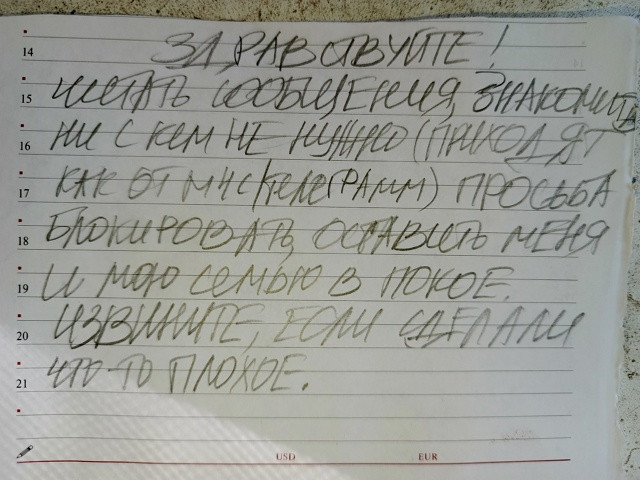 14 ЗДРАВСТВУЙТЕ!
15 ЧИТАТЬ СООБЩЕНИЯ, ЗНАКОМИТЬ
16 НИ С КЕМ НЕ НУЖНО (ПРИХОДЯТ
17 КАК ОТ МЧС/ТЕЛЕГРАММ) ПРОСЬБА
18 БЛОКИРОВАТЬ, ОСТАВИТЬ МЕНЯ
19 И МОЮ СЕМЬЮ В ПОКОЕ.
20 ИЗВИНИТЕ, ЕСЛИ СДЕЛАЛИ
21 ЧТО-ТО ПЛОХОЕ.
USD EUR